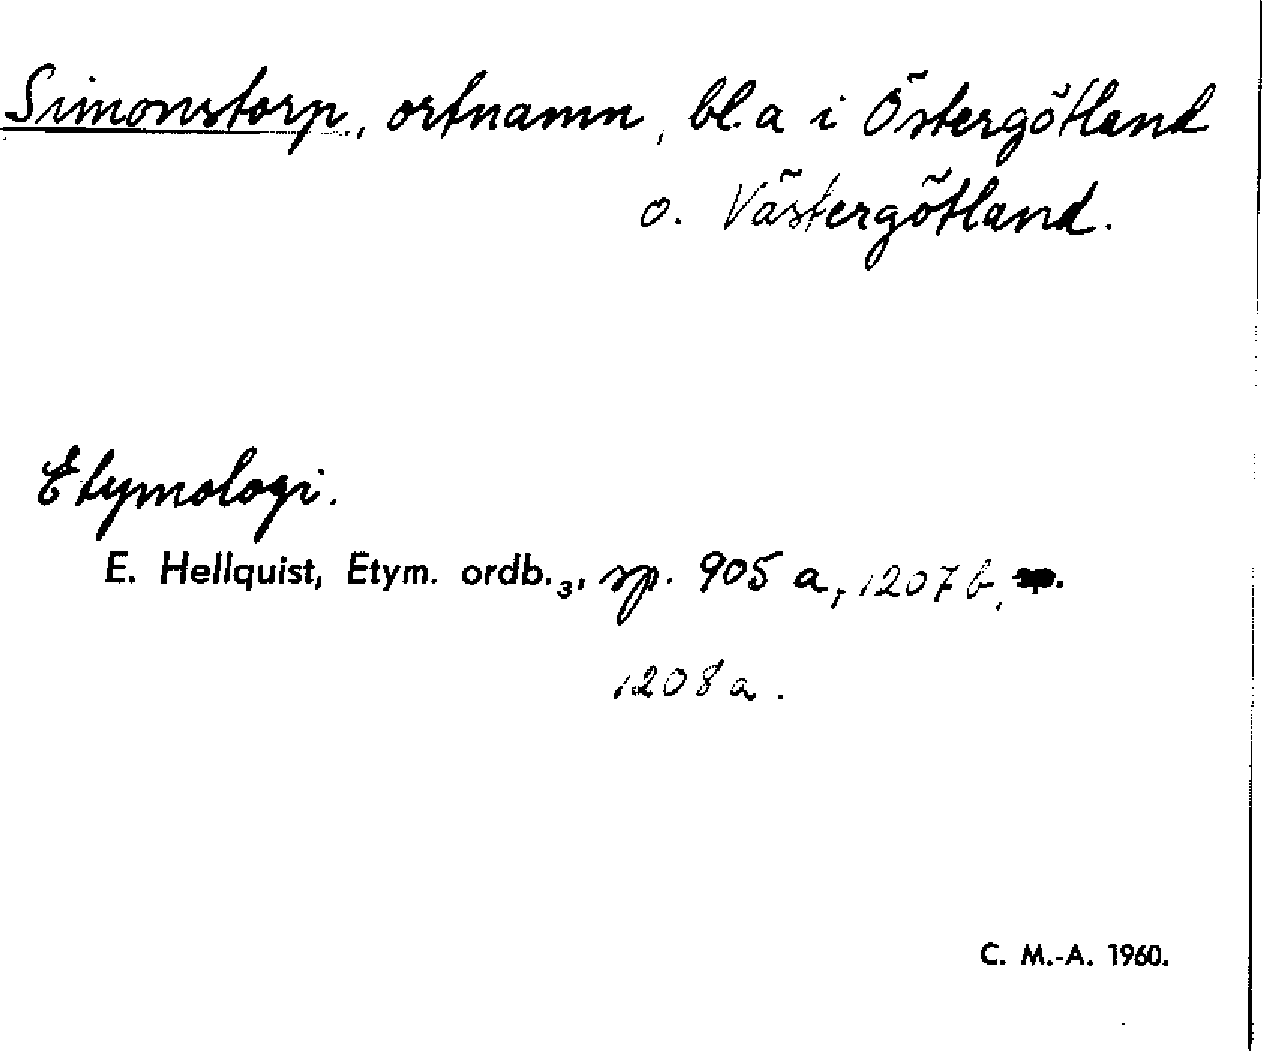 Simonstorp, ortnamn, bl.a i Östergötland
o. Västergötland.
Etymologi.
E. Hellquist, Etym. ordb.₃, sp. 905 a, 1207 b,
1208 a.
C. M.-A. 1960.